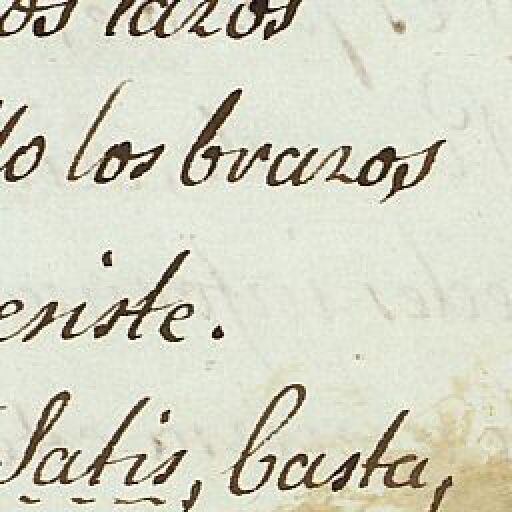 os lazos
lo los brazos,
esiste.
Satis, basta,